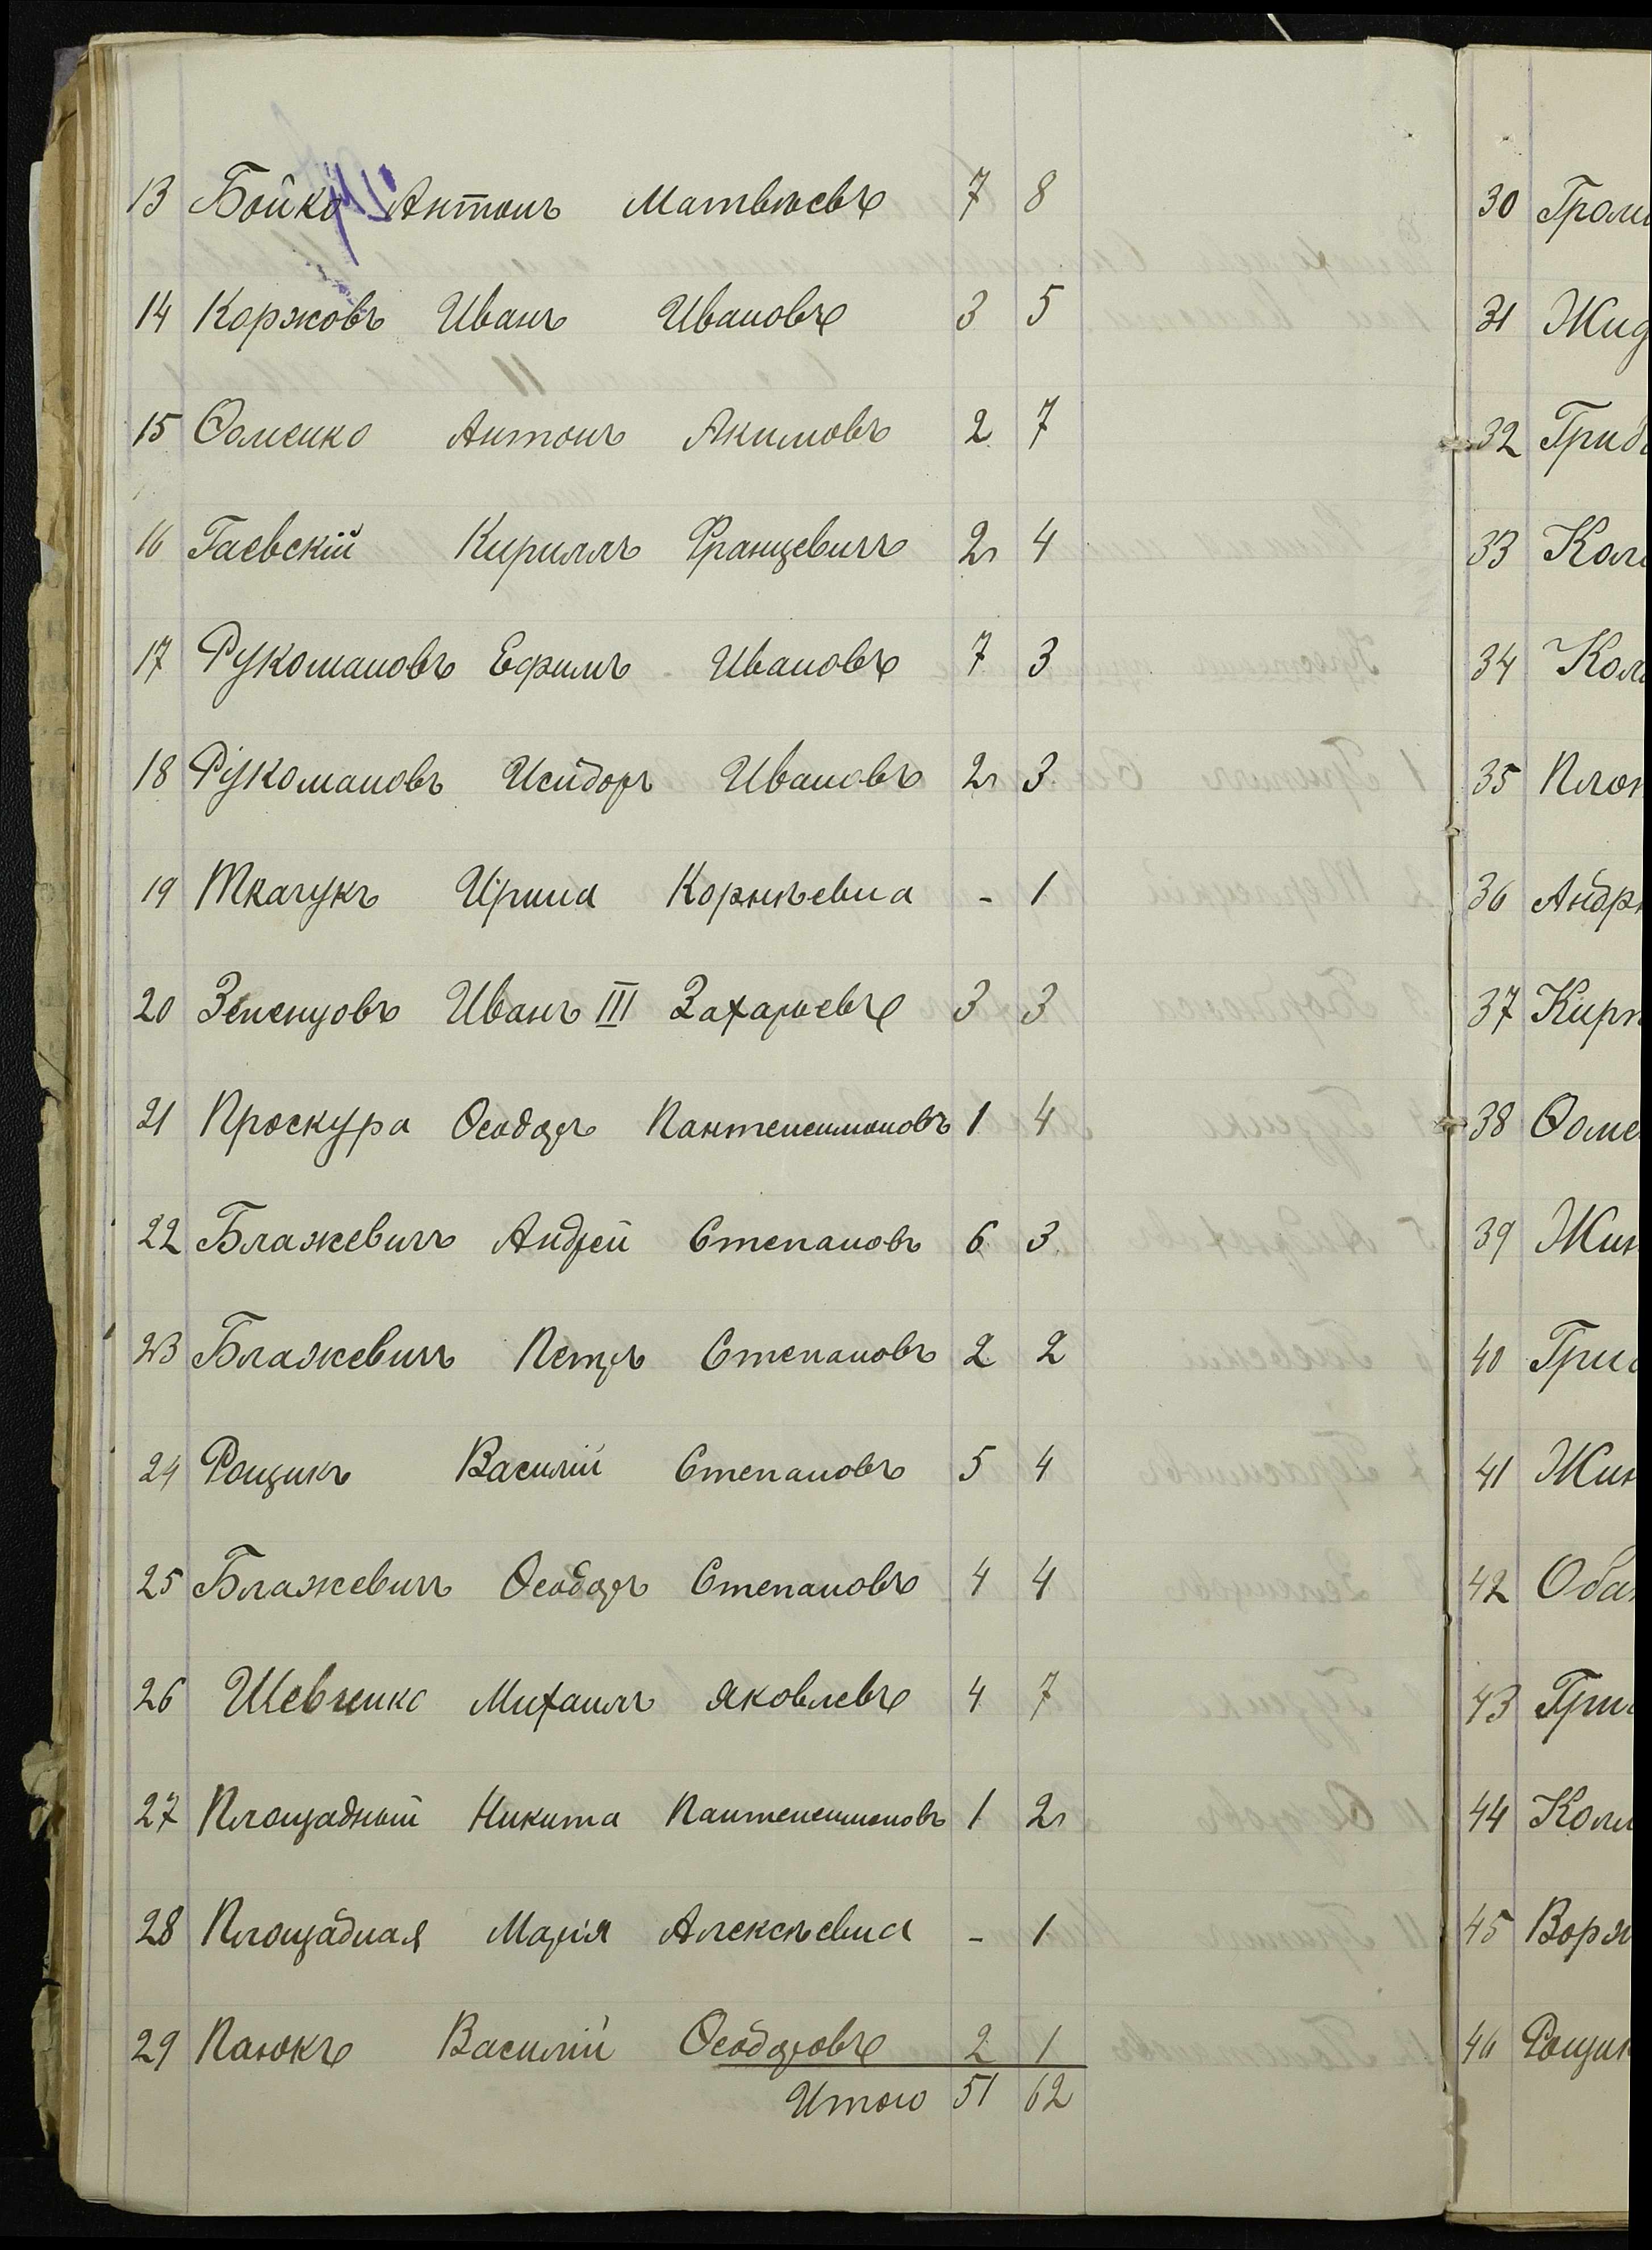 13 Бойко Антонъ Матвѣевъ 7 8
14 Коржовъ Иванъ Ивановъ 3 5
15 Ѳоменко Антонъ Якимовъ 2 7
16 Гаевскій Кириллъ Францевичъ 2 4
17 Рукомановъ Ефимъ Ивановъ 7 3
18 Рукомановъ Исидоръ Ивановъ 2 3
19 Ткачукъ Ирина Корнѣевна - 1
20 Зеленцовъ Иванъ III Захарьевъ 3 3
21 Проскура Ѳеодоръ Пантелеимоновъ 1 4
22 Блажевичъ Андрей Степановъ 6 3
23 Блажевичъ Петръ Степановъ 2 2
24 Рощикъ Василій Степановъ 5 4
25 Блажевичъ Ѳеодоръ Степановъ 4 4
26 Шевченко Михаилъ Яковлевъ 4 7
27 Площадный Никита Пантелеимоновъ 1 2
28 Площадная Марія Алексѣевна - 1
29 Панюкъ Василій Ѳеодоровъ 2 1
Итого 51 62
30
31 Жид
32
33
34
35
36 Андр
37 Кир
38 Ѳоме
39
40
41
42
43
44
45
46 Рощик